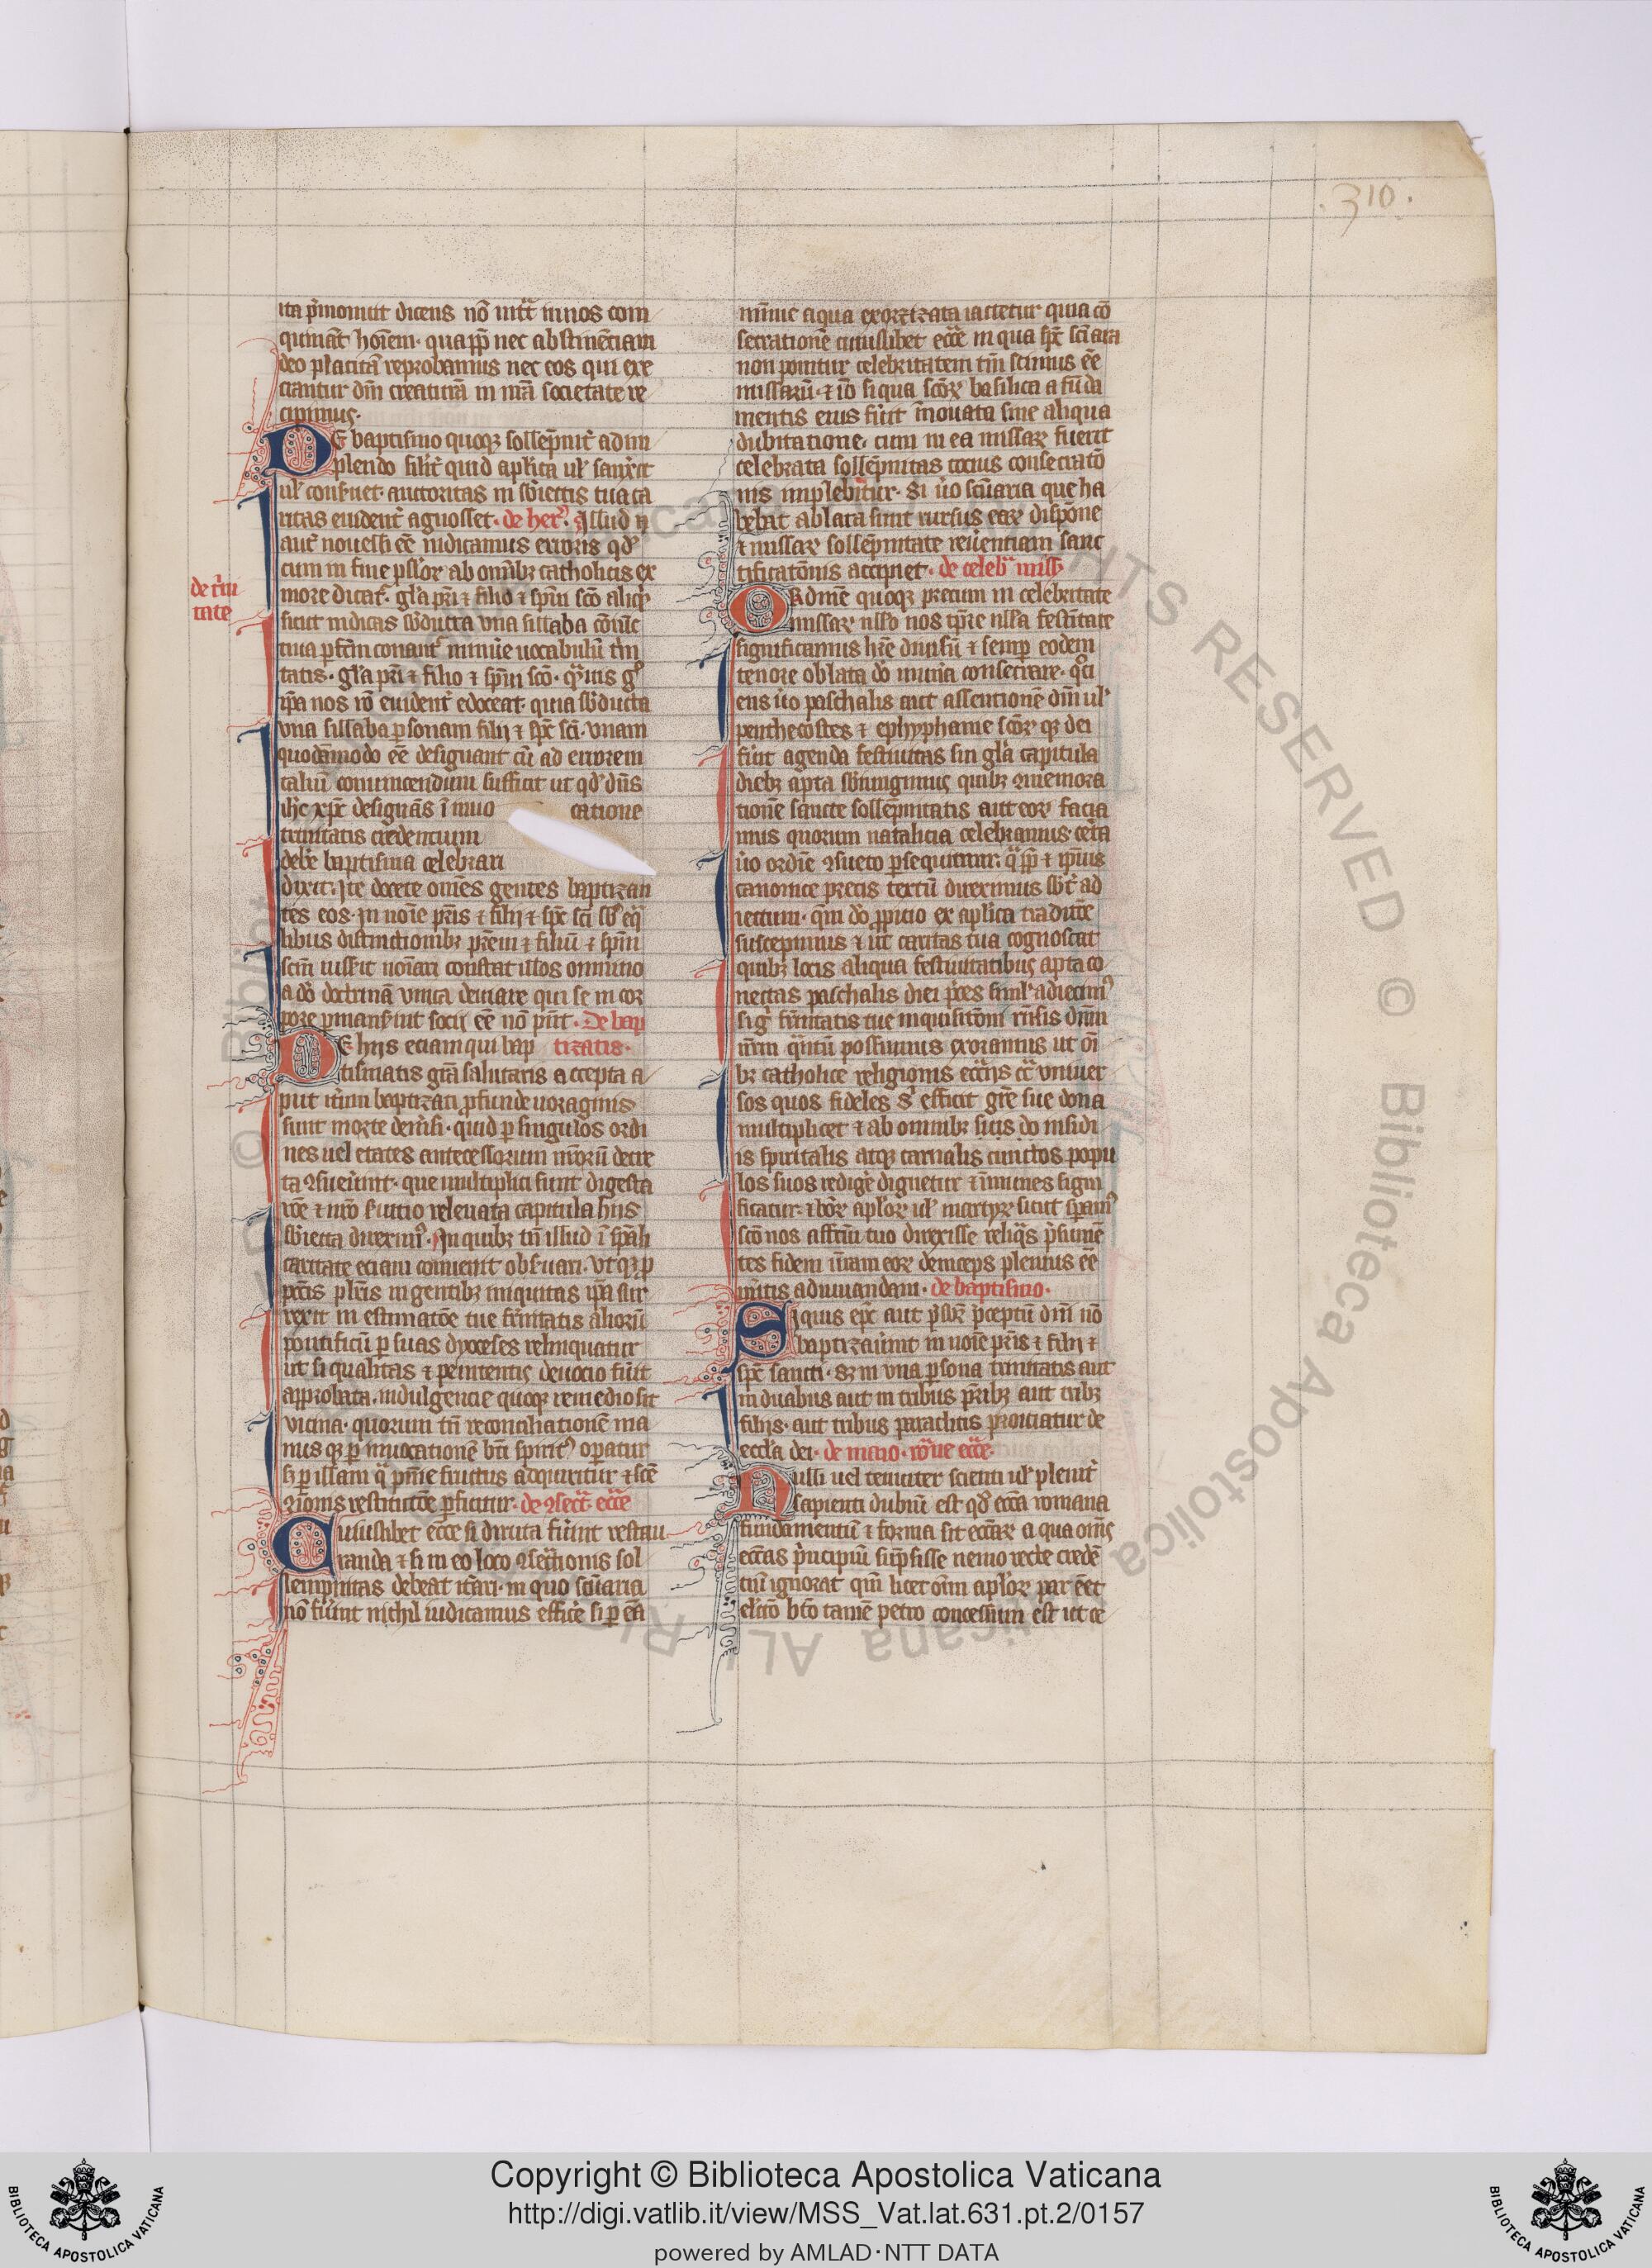 .310.
ita p̄monuit dicens nō intͣt in uos com
quināt hoīem. quapp̄ nec abstinētiam
deo placitā reprobamus nec eos qui exe
crantur dn̄i creaturā in nr̄a societate re
cipimus.
DE baptismo quoqꝫ sollēpnit̄ adim
plendo silit̄ quid apl̄ica ul̓ sanxit
ul̓ conseruet auctoritas in sb̄iectis tua ca
ritas euident̄ agnosset. de her̄. Illud
aut̄ nouelli eē iudicamus erroris qd̓
cum in fine psl̄oꝝ ab om̄ibꝫ catholicis ex
de t͛ni
tate
more dicat̄. gl̄a pr̄i ⁊ filio ⁊ sp̄iu sc̄o aliq̓
sicut indicas sb̄ducta una sillaba
tua perfc̄am conant̄ minuere uocabulū t͛ni
tatis. gl̄a pr̄i ⁊ filio ⁊ sp̄iu sc̄o. qͣuis gͦ
ip̄a nos rō euident̄ edoceat. quia sb̄ducta
una sillaba personam filij ⁊ sp̄c sc̄i. unam
quodāmodo eē designant cū ad errorem
taliū conuincendum sufficit ut qd̓ dn̄s
ih̄c xp̄c designās ī inuo catione
trinitatis credentium
debe̓ baptisma celebrari
dixit. Ite docete omēs gentes baptizan
tes eos. In noīe pr̄is ⁊ filij ⁊ sp̄c sc̄i
libus distinctionibꝫ pr̄em ⁊ filiū ⁊ sp̄m
sc̄m iusserit noīari constat illos omnino
a dō doctrinā unica deuiare qui se in cor
pore permanserint socij eē nō pn̄t. De bap
DE hijs eciam qui bap tizatis.
tismatis gr̄a salutaris accepta a
put it̄um baptizati profunde uoraginis
sunt morte demersi. quid per singulos ordi
nes uel etates antecessorum nr̄orū decre
ta ꝯsueu̓int. que multiplici sunt digesta
rōe ⁊ nr̄o seruitio releuata capitula hijs
sb̄iecta direximꝰ. In quibꝫ tn̄ illud ī sp̄ali
caritate eciam conuenit obseruari. ut qꝫ p
pc̄is plenis in gentibꝫ iniquitas ip̄a sur
rexit in estimatōe tue fr̄nitatis aliorū
pontificū per suas dyoceses relinquatur
ut si qualitas ⁊ penitentis deuocio fu̓it
approbata. indulgencie quoqꝫ remedio sit
uicina. quorum tn̄ reconciliationē ma
nus qꝫ per inuocationē sc̄i spiritꝰ operatur
sꝫ per illam qͣ pn̄ie fructus adquiritur ⁊ sc̄e
ꝯionis restitutōe perficitur. de ꝯsecͣt. ecc̄e
Cuiuslibet ecc̄e si diruta fu̓int restau
randa ⁊ si in eo loco ꝯsec̓tionis sol
lempnitas debeat it̄ari. in quo sc̄uaria
nō fu̓int nichil iudicamus effice̓ si per eā
minime aqua exorzizata iactetur quia cō
secrationē cuiuslibet ecc̄e in qua sp̄c sc̄i ara
non ponitur celebritatem tm̄ scimus eē
missarū. ⁊ iō si qua sc̄oꝝ basilica a funda
mentis eius fu̓it īnouata sine aliqua
dubitatione. cum in ea missaꝝ fuerit
celebrata sollēpnitas tocius consecratō
nis implebitur. Si uo̓ sc̄uaria que ha
bebat ablata sunt rursus eaꝝ dispōne
⁊ missaꝝ sollēpnitate reuerentiam sanc
tificatōnis accipiet. de celebͣ miss̄
Ordinē quoqꝫ precum in celebritate
missaꝝ nullo nos tp̄re nulla festiuitate
significamus hr̄e diuersū ⁊ semper eodem
tenore oblata dō munera consecrare. qͦci
ens uo̓ paschalis aut assentionē dn̄i ul̓
penthecostes ⁊ ephyphanie sc̄oꝝ qꝫ dei
fu̓it agenda festiuitas sin gl̄a capitula
diebꝫ apta sb̄iungimus quibꝫ ꝯmemora
tionē sancte sollēpnitatis aut eoꝝ facia
mus quorum natalicia celebramus. cet̄a
uo̓ ordīe ꝯsueto persequimur. qͣpp̄ ⁊ ip̄ius
canonice precis textū direximus sb̄t̄ ad
iectum. qm̄ dō propitio ex apl̄ica traditōe
suscepimus ⁊ ut caritas tua cognoscat
quibꝫ locis aliqua festiuitatibus apta co
nectas paschalis diei p̄ces simil̓ adiecimꝰ
nr̄m qͣntū possumus exorantes ut oī
bꝫ catholice religionis ecc̄ijs ⁊ͨ uniuer
sos quos fideles sͥ efficit gr̄e sue dona
multiplicet ⁊ ab omnibꝫ suis do insidi
is spiritalis atqꝫ carnalis cunctos popu
los suos redige̓ dignetur
sc̄o nos affectui tuo direxisse reliqͥs p̄sume
tes fidem uram eoꝝ deinceps plenius eē
m̄itis adiuuandam. de baptismo.
Siquis ep̄c aut p̄sbr̄ p̄ceptū dn̄i nō
baptizau̓int in noīe pr̄is ⁊ filij ⁊
sp̄c sancti. sꝫ in una persona trinitatis aut
in duabus aut in tribus pr̄ibꝫ aut tribꝫ
filijs. aut tribus paraclitis proiciatur de
eccl̄a dei.
Nulli uel tenuiter scienti ul̓ plenit̄
sapienti dubiū est qd̓ ecc̄a romana
fundamentū ⁊ forma sit ecc̄aꝝ a qua om̄s
ecc̄as p̄ncipiū sūpsisse nemo recte credē
tiū ignorat qm̄ licet oīm apl̄oꝝ par eēt
elcō bt̄o tamē petro concessum est ut ce
BIBLIOTECA APOSTOLICA VATICANA
Copyright © Biblioteca Apostolica Vaticana
http://digi.vatlib.it/view/MSS_Vat.lat.631.pt.2/0157
powered by AMLAD·NTT DATA
BIBLIOTECA APOSTOLICA VATICANA